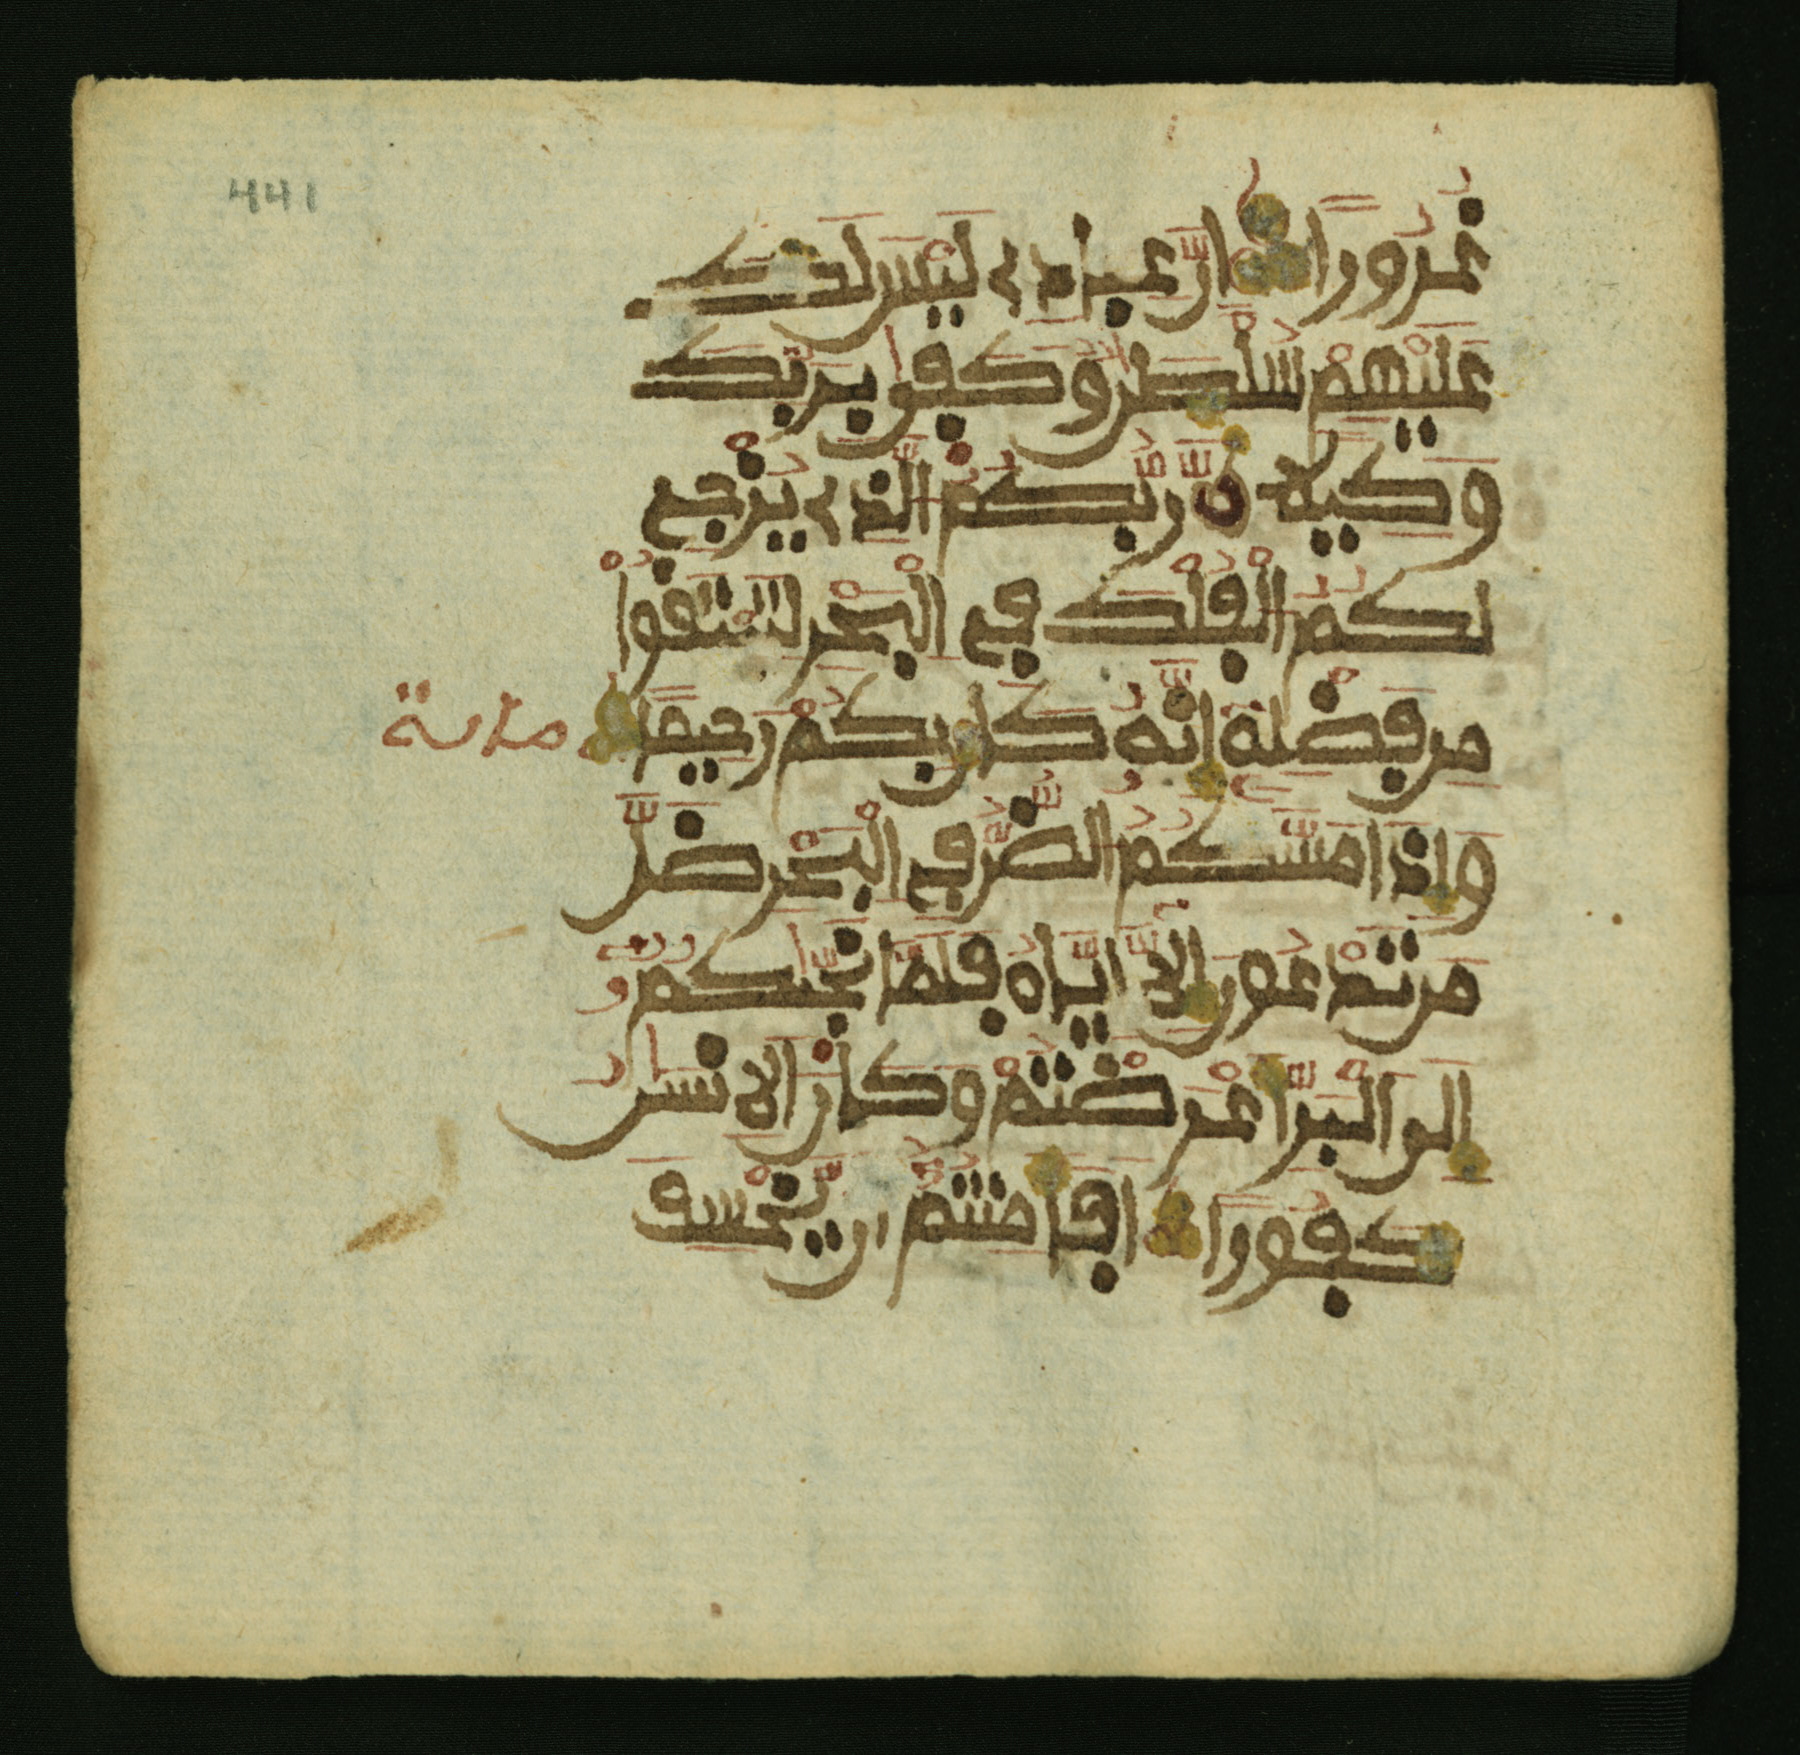 441
غرورا ان عبادي ليس لك
عليهم سلطن وكفى بربك
وكيلا ربكم الذي يزجي
لكم الفلك في البحر لتبتغوا
من فضله انه كان بكم رحيما
واذا مسكم الضر في البحر ضل
من تدعون الا اياه فلما نجيكم
الى البر اعرضتم وكان الانسن
كفورا افامنتم ان يخسف